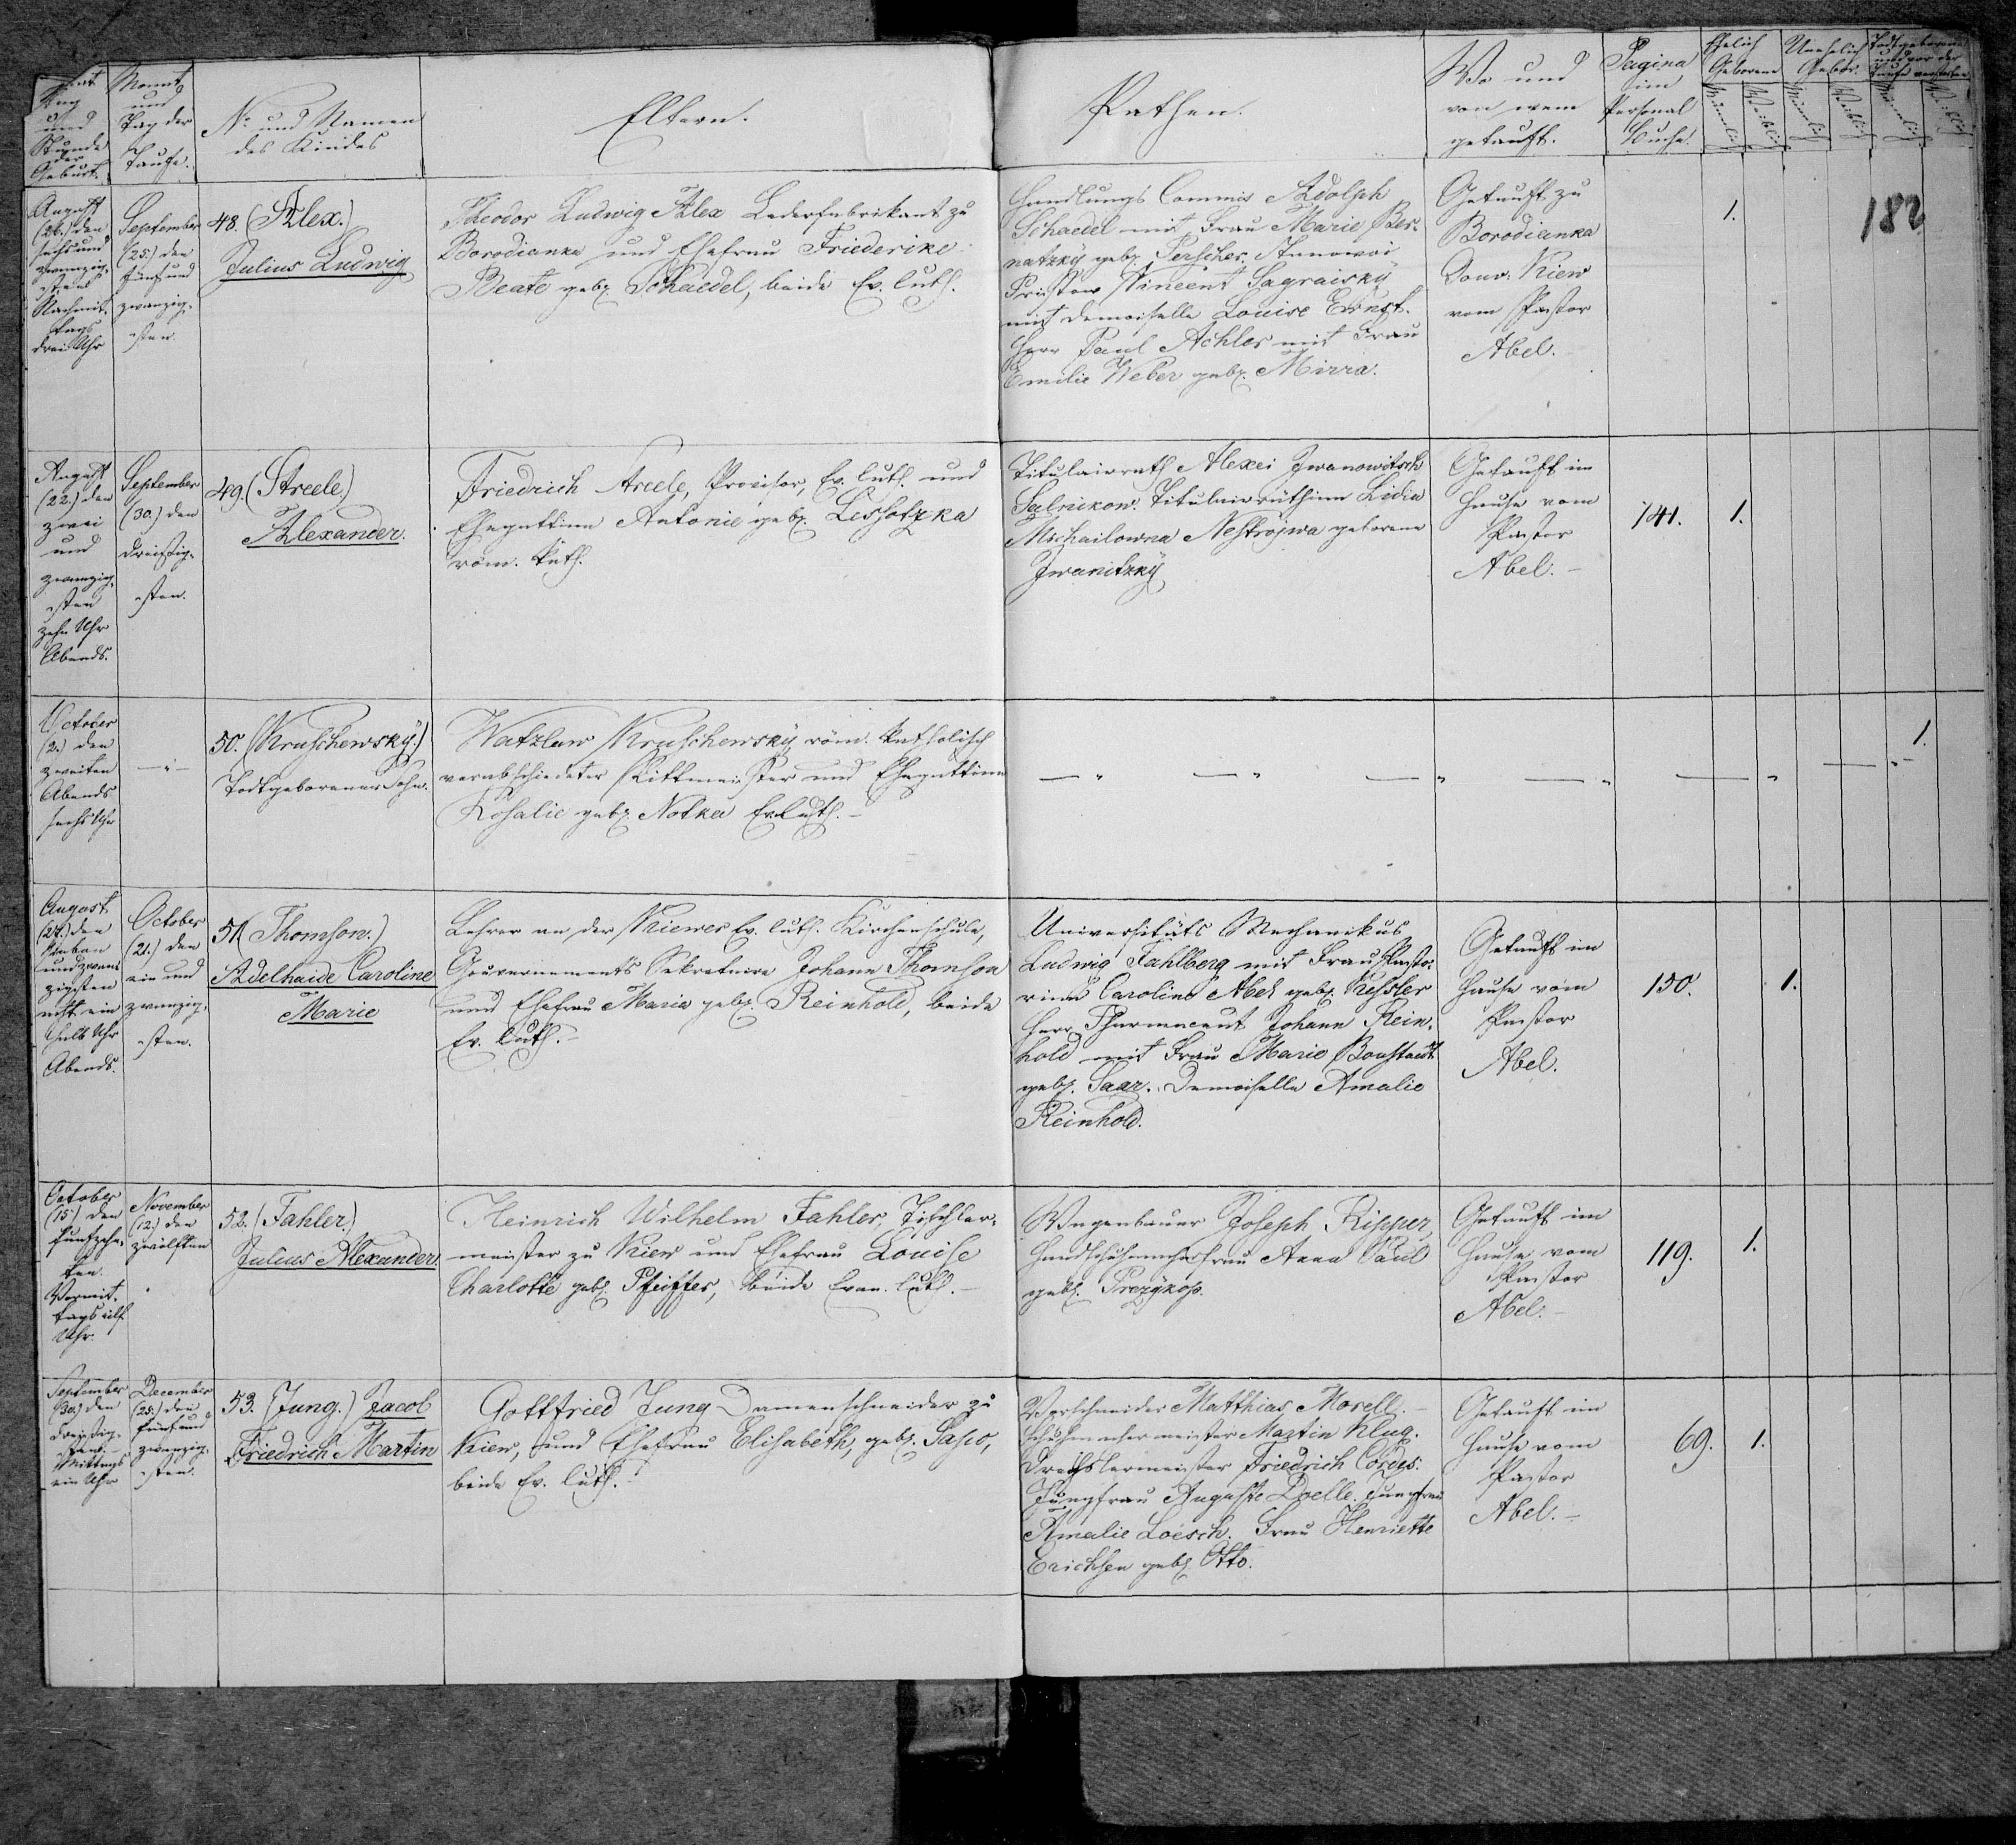 Monat
Tag
und
Stunde
der
Geburt.
Monat
und
Tag der
Taufe.
No und Namen
des Kindes
Eltern.
Pathen.
Wo und
von wem
getauft.
Pagina
im
Personal
Buche.
Ehelich
Geborene
Unehelich
Gebor.
Todtgeborene
und vor der
Taufe verstorben
Männlich
Weiblich
Männlich
Weiblich
Männlich
Weiblich
182
August
(26.) den
sechs und
zwanzig-
sten
Nachmit-
tags
drei Uhr
September
(25.) den
fünf und
zwanzig-
sten
48. (Alex.)
Julius Ludwig
Theodor Ludwig Alex Lederfabrikant zu
Borodianka und Ehefrau Friederike
Beate geb. Schaedel, beide Ev. luth.
Handlungs Commis Adolph
Schaedel mit Frau Marie Ber-
natzky geb. Perscher. Stanowoi
Pristaw Vincent Sagraisky
mit Demoiselle Louise Ernst.
Herr Paul Achler mit Frau
Emilie Weber geb. Mirra.
Getauft zu
Borodianka
Gouv: Kiew
vom Pastor
Abel.
1.
August
(22.) den
zwei
und
zwanzig-
sten
zehn Uhr
Abends.
September
(30.) den
dreißig-
sten.
49. (Streele.)
Alexander.
Friedrich Streele, Provisor, Ev. luth. und
Ehegattinn Antonie geb. Lessotzka
röm. kath.
Titulairrath Alexei Iwanowitsch
Salnikow. Titulairräthinn Lidia
Michailowna Nestrojwa geborene
Iwanitzky
Getauft im
Hause vom
Pastor
Abel. –
141.
1.
October
(2.) den
zweiten
Abends
sechs Uhr
— " —
50. (Kruschewsky.)
Todtgeborener Sohn.
Watzlaw Kruschewsky röm. katholisch
verabschiedeter Rittmeister und Ehegattinn
Rosalie geb. Notka Ev. luth. –
— " — " — " — " — " — " –
1.
August
(27.) den
sieben
und zwan-
zigsten
acht ein
halb Uhr
Abends.
October
(21.) den
ein und
zwanzig-
sten.
51. (Thomson.)
Adelhaide Caroline
Marie
Lehrer an der Kiewer Ev. luth. Kirchenschule,
Gouvernements Sekretaire Johann Thomson
und Ehefrau Maria geb. Reinhold, beide
Ev. luth. –
Universitäts Mechanikus
Ludwig Fahlberg mit Frau Pasto-
rinn Caroline Abel geb. Kessler
Herr Pharmaceut Johann Rein-
hold mit Frau Marie Boustaedt
geb. Saar. Demoiselle Amalie
Reinhold.
Getauft im
Hause vom
Pastor
Abel.
130.
1.
October
(15.) den
funfzehn-
ten.
Vormit-
tags eilf
Uhr.
November
(12.) den
zwölften
52. (Fahler.)
Julius Alexander.
Heinrich Wilhelm Fahler, Tischler-
meister zu Kiew und Ehefrau Louise
Charlotte geb. Pfeiffer, beide Evan. luth. –
Wagenbauer Joseph Ripper,
Handschuhmacherfrau Anna Paul
geb. Prezykop.
Getauft im
Hause vom
Pastor
Abel. –
119.
1.
September
(30.) den
dreißig-
sten. –
Mittags
ein Uhr
December
(25.) den
fünf und
zwanzig-
sten.
53. (Jung.) Jacob
Friedrich Martin
Gottfried Jung Damenschneider zu
Kiew, und Ehefrau Elisabeth, geb. Saso,
beide Ev. luth.
Matthias Morell. –
Schuhmachermeister Martin Klug.
Drechslermeister Friedrich Cordes.
Jungfrau Auguste Doelle. Jungfrau
Amalie Loesch. Frau Henriette
Erichsen geb. Otto.
Getauft im
Hause vom
Pastor
Abel. –
69.
1.